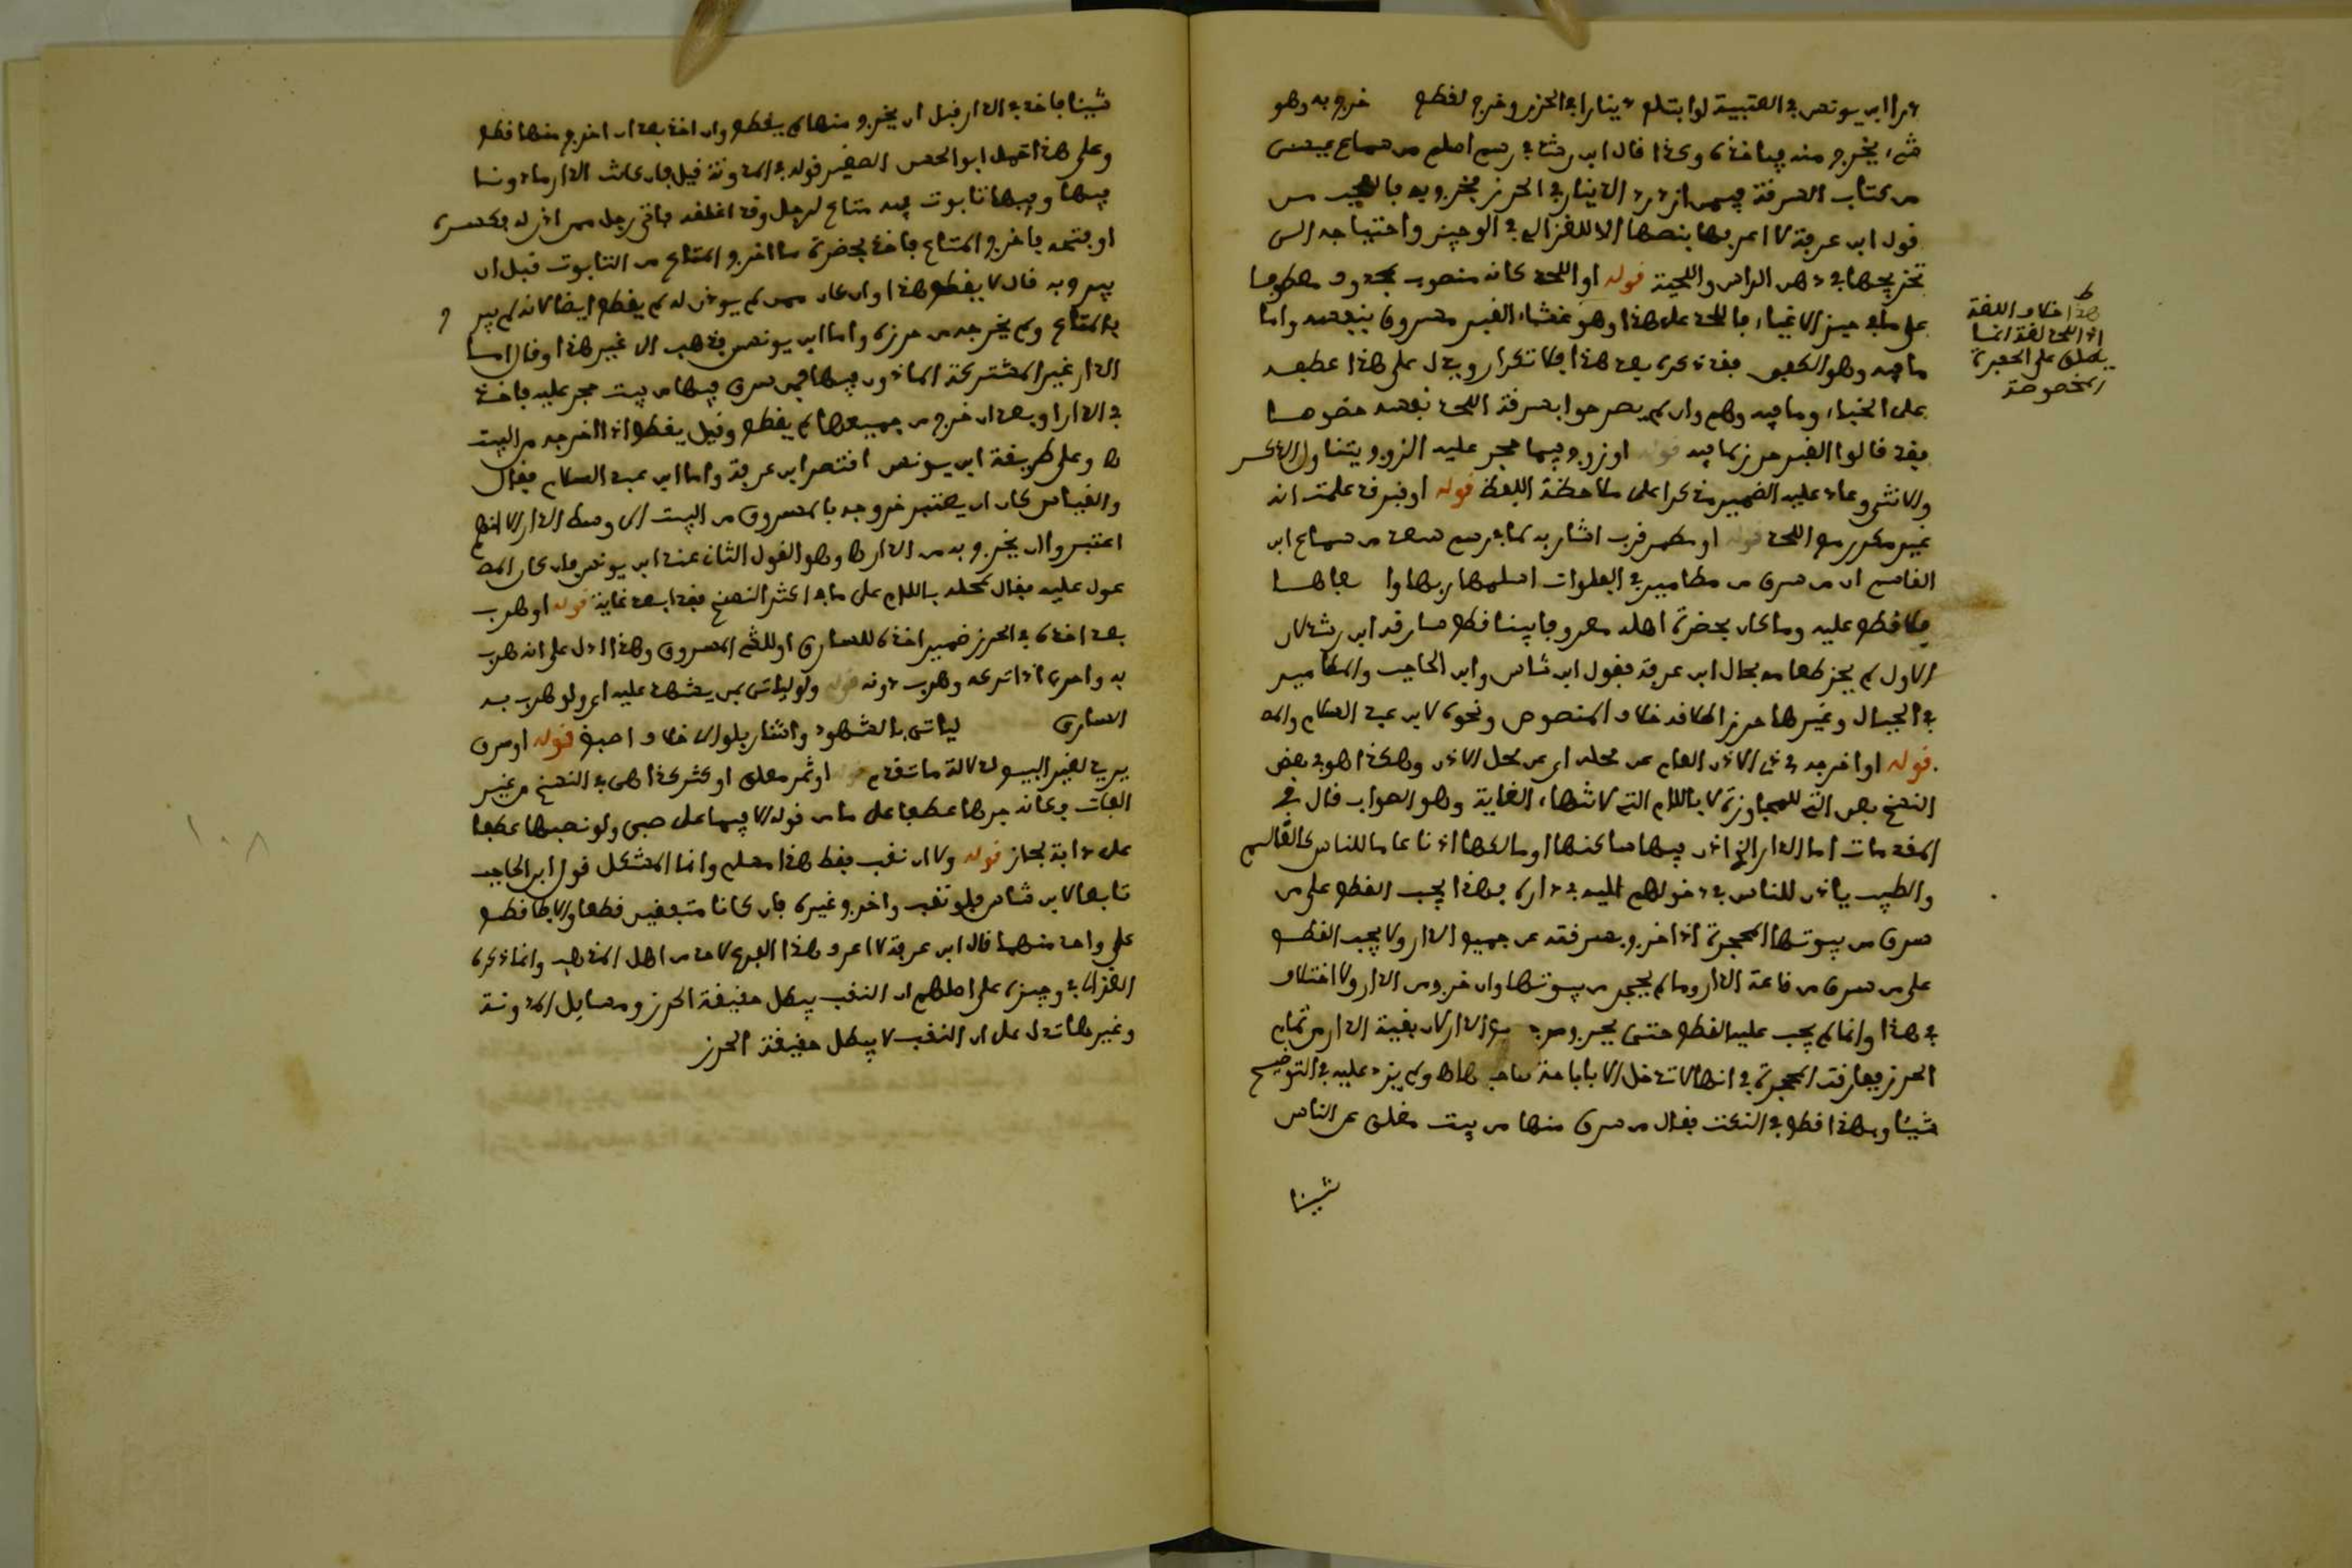 ابن يونس في العتبية لو ابتلع دينارا في الحرز وخرج لقطع خروجه به وهو
شيء يخرج منه فيأخذه وكذا قال ابن رشد في رسم اسلم من سماع عيسى
من كتاب السرقة فيمن ازدرد الدينار في الحرز فخرج به فالعجب من
قول ابن عرفة لا اعرفها بنصها الا للغزالي في الوجيز واحتياجه الى
تخريجها في دهن الراس واللحية قوله او اللحد كانه منصوب بمحذوف معطوفا
على ما في حيز الاغياء فاللحد على هذا وهو غشاء القبر مسروق بنفسه واما
ما فيه وهو الكفن فقد ذكره بعد هذا فلا تكرار ويدل على هذا عطفه
على الخباء وما فيه وهم وان لم يصرحوا بسرقة اللحد نفسه خصوصا
فقد قالوا القبر حرز لما فيه قوله او زوج فيما حجر عليه الزوج يتناول الذكر
والانثى وعاد عليه الضمير مذكرا على ملاحظة اللفظ قوله او قبر قد علمت انه
غير مكرر مع اللحد قوله او مطمر قرب اشار به لما في رسم سعد من سماع ابن
القاسم ان من سرق من مطامير في الفلوات اسلمها ربها واخفاها
فلا قطع عليه وما كان بحضرة اهله معروفا بينا قطع سارقه ابن رشد لان
الاول لم يحرز طعامه بحال ابن عرفة فقول ابن شاس وابن الحاجب والمطامير
في الجبال وغيرها حرز اطلاقه خلاف المنصوص ونحوه لابن عبد السلام
قوله او اخرجه في ذي الاذن العام عن محله اي عن محل الاذن وهكذا هو في بعض
النسخ بعن التي للمجاوزة لا باللام التي لانتهاء الغاية وهو الصواب قال في
المقدمات اما الدار التي اذن فيها ساكنها او مالكها اذنا عاما للناس كالعالم
والطبيب يأذن للناس في دخولهم اليه في داره فهذا يجب القطع على من
سرق من بيوتها المحجرة اذا خرج بسرقته عن جميع الدار ولا يجب القطع
على من سرق من قاعة الدار وما لم يحجر من بيوتها وان خرج من الدار ولا اختلاف
في هذا وانما لم يجب عليه القطع حتى يخرج من جميع الدار لان بقية الدار من تمام
الحرز فيفارقت المحجرة في انها لا تدخل الا باباحة صاحبها ولم يزد عليه في التوضيح
شيئا وبهذا قطع في النكت فقال من سرق منها من بيت مغلق عن الناس
شيئا
هذا خلاف اللغة
اذ اللحد لغة انما
يطلق على الحفرة
المخصوصة
شيئا فاخذ في الدار قبل ان يخرج منها لم يقطع وان اخذ بعد ان اخرج منها قطع
وعلى هذا تحمل ابو الحسن الصغير قوله في المدونة قيل فان كانت الدار مأذونا
فيها وفيها تابوت فيه متاع لرجل وقد اغلقه فاتى رجل ممن اذن له فكسره
او فتحه فاخرج المتاع فاخذ بحضرة ما اخرج المتاع من التابوت قبل ان
يبرح به قال لا يقطع هذا وان كان ممن لم يوذن له لم يقطع ايضا لانه لم يبرح
بالمتاع ولم يخرجه من حرزه واما ابن يونس فذهب الى غير هذا وقال اما
الدار غير المشتركة المأذون فيها فمن سرق فيها من بيت حجر عليه فاخذ
في الدار او بعد ان خرج من جميعها لم يقطع وقيل يقطع اذا اخرجه من البيت
ها وعلى طريقة ابن يونس اقتصر ابن عرفة واما ابن عبد السلام فقال
والقياس كان ان يعتبر خروجه بالمسروق من البيت الى وسط الدار الا انهم
اعتبروا ان يخرج به من الدار ها وهو القول الثاني عند ابن يونس فان كان المصنف
عول عليه فقال لمحله باللام على ما في اكثر النسخ فقد ابعد غاية قوله او هرب
بعد اخذه في الحرز ضمير اخذه للسارق او للشيء المسروق وهذا ادل على انه هرب
به واحرى اذا تركه وهرب دونه قوله ولو لياتي بمن يشهد عليه اي ولو هرب به
السارق لياتي بالشهود واشار بلو لخلاف اصبغ قوله او سرق
يريد لغير البيع لدلالة ما تقدم قوله او ثمر معلق او كثر كذا هي في النسخ من غير
الفات وكانه جرها عطفا على ما من قوله لا فيما على صبي ولو نصبها عطفا
على دابة لجاز قوله ولا ان نقب فقط هذا مسلم وانما المشكل قول ابن الحاجب
تابعا لابن شاس فلو نقب واخرج غيره فان كانا متفقين قطعا والا فلا قطع
على واحد منهما قال ابن عرفة لا اعرف هذا الفرع لاحد من اهل المذهب وانما ذكره
الغزالي في وجيزه على اصلهم ان النقب يبطل حقيقة الحرز ومسايل المدونة
وغيرها تدل على ان النقب لا يبطل حقيقة الحرز
١٠٨